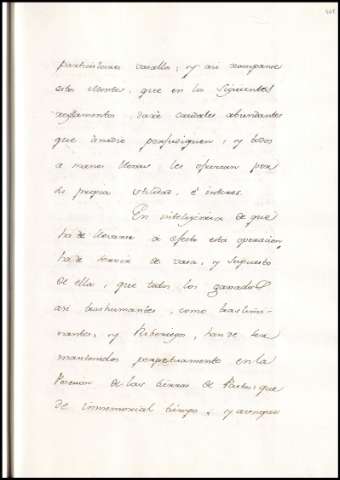 particulares vasallos, y asi acompane
estos clientes, que en los siguientes
reglamentos dará caudales abundantes
que á nadie perjudiquen, y todos
a manos llenas les ofrezcan por
su propia utilidad, é interes.
En inteligencia de que
ha de llevarse a efecto esta operacion,
ha de servir de vasa, y supuesto
de ella, que todos los ganados
asi trashumantes, como trastermi-
nantes, y Riberiegos, han de ser
mantenidos perpetuamente en la
Posesion de las tierras de Pasto, que
de inmemorial tiempo, y